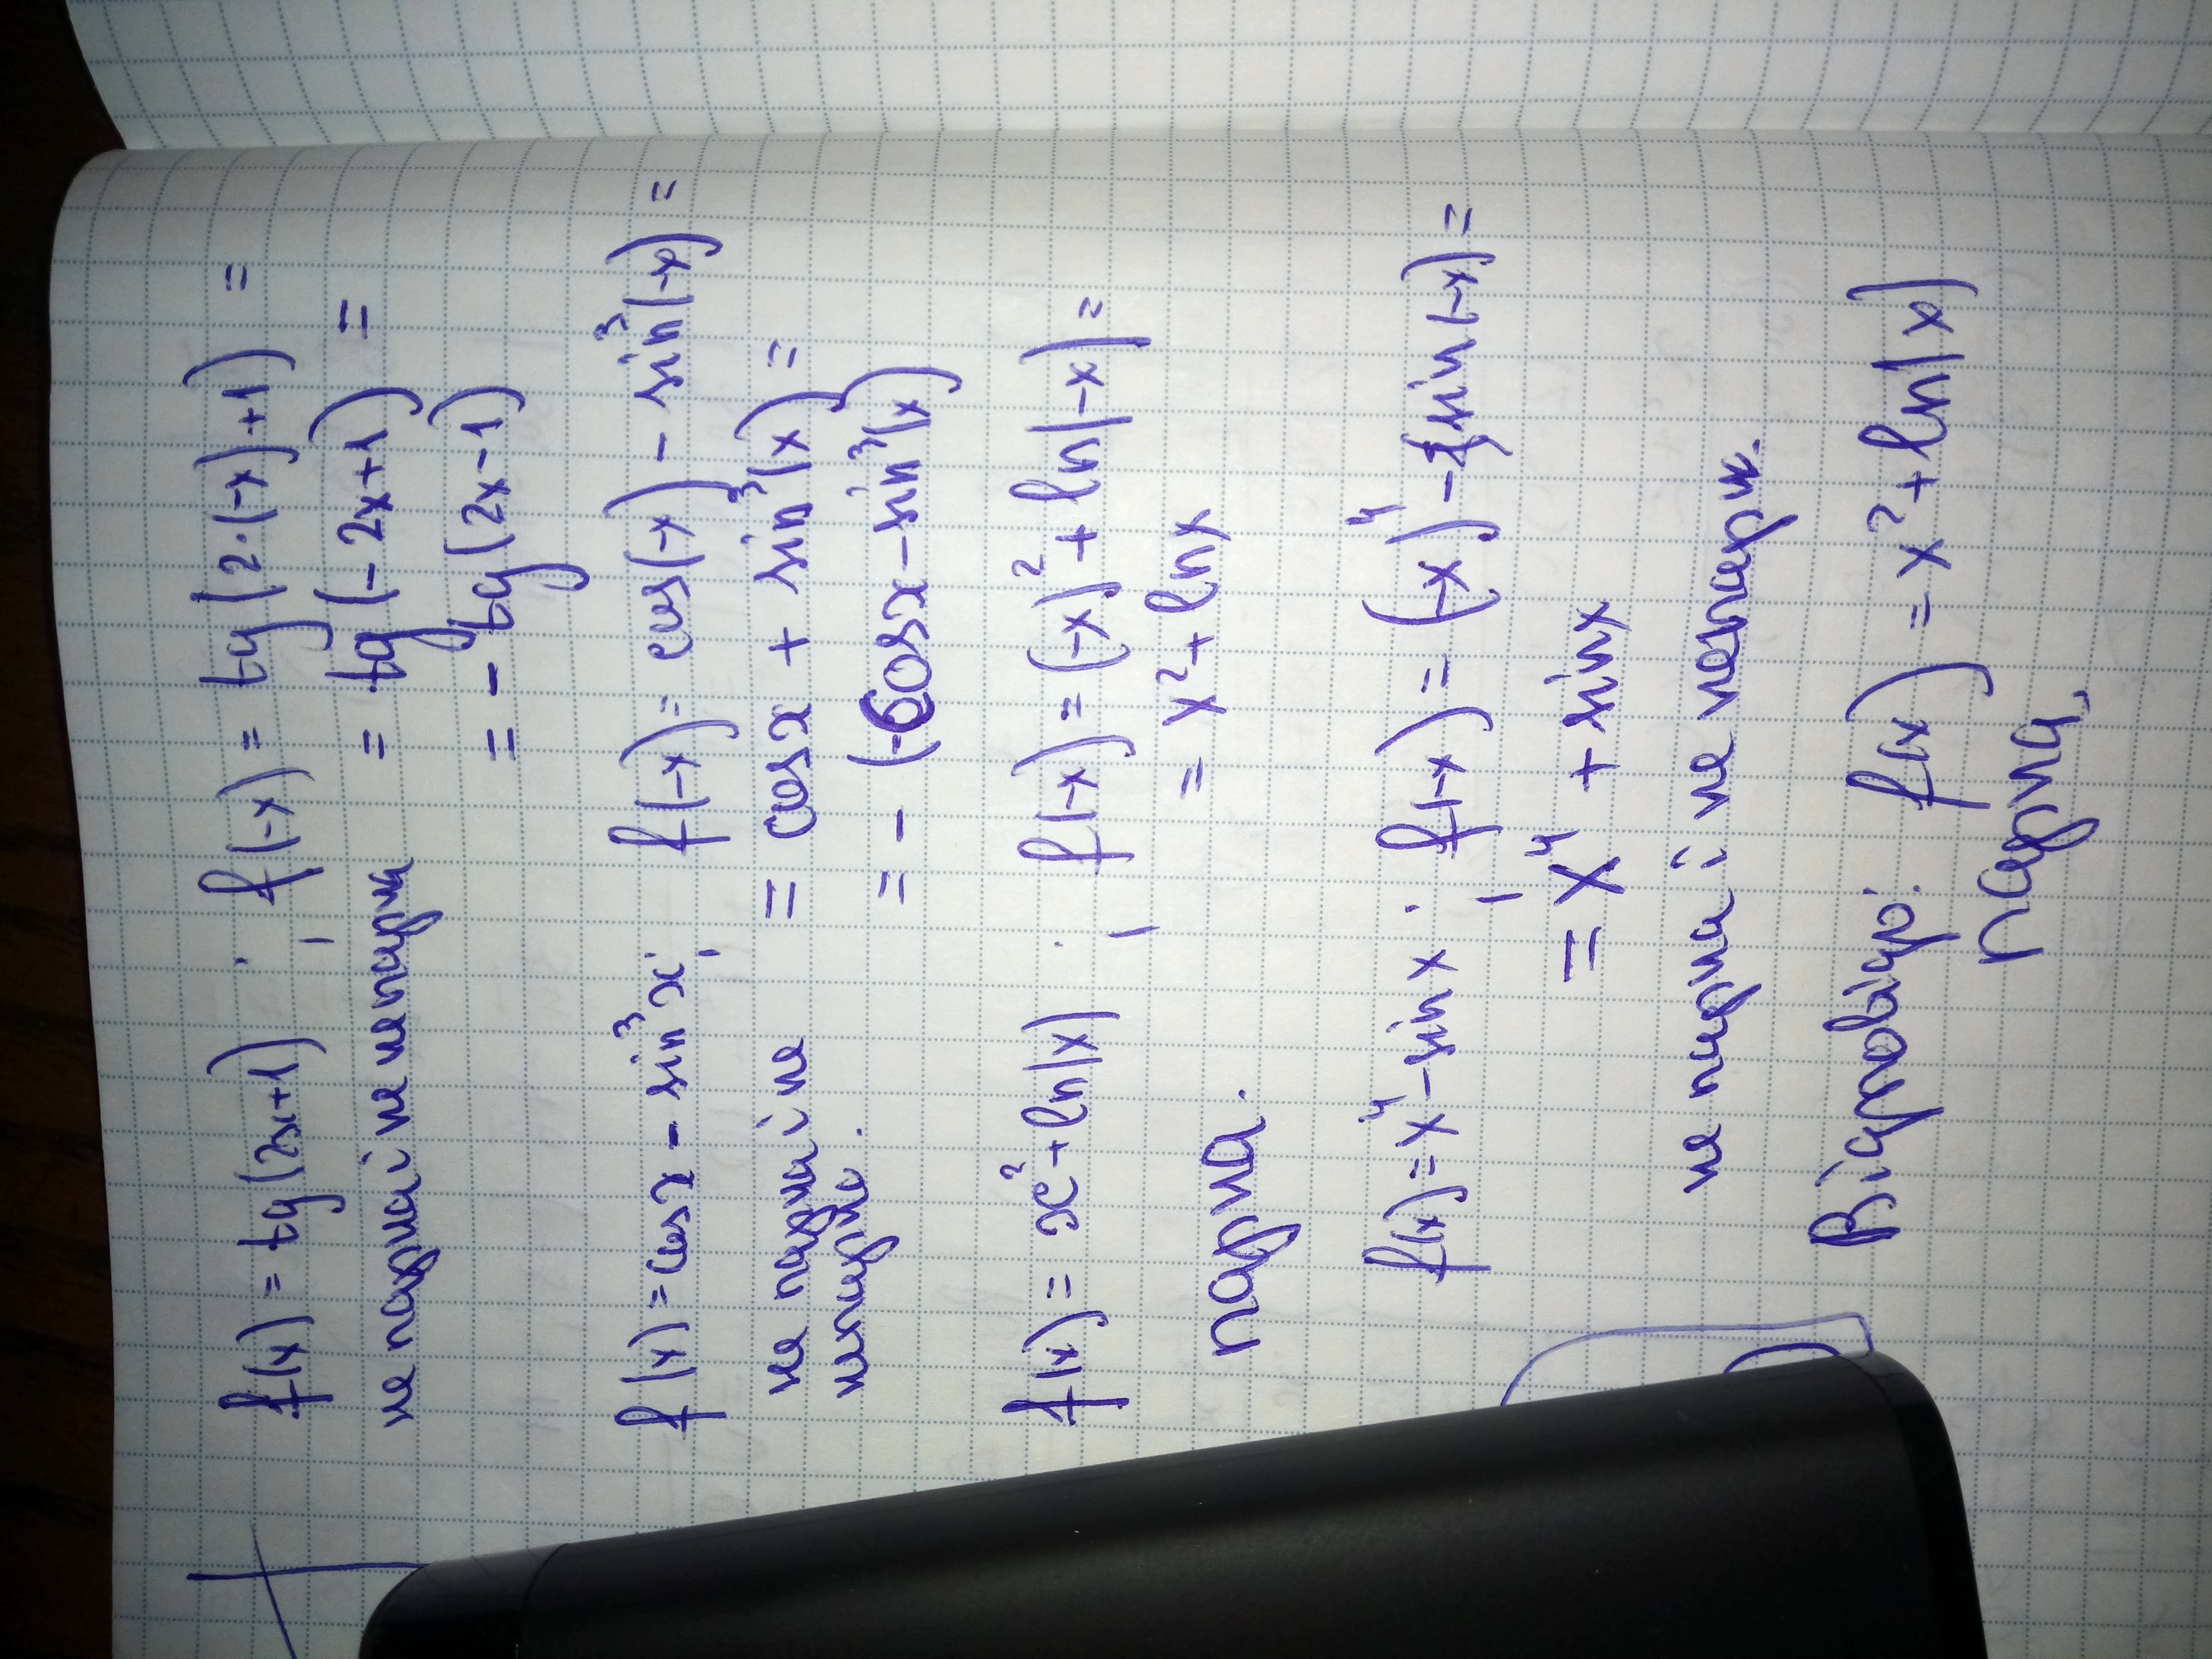 f(x) = tg(2x+1) ; f(-x) = tg(2·(-x)+1) =
не парна і не непарна = tg(-2x+1) =
= - tg(2x-1)
f(x) = cos x - sin³x; f(-x) = cos(-x) - sin³(-x) =
не парна і не = cos x + sin³(x) =
непарна. = - (-cos x - sin³(x))
f(x) = x² + ln|x| ; f(-x) = (-x)² + ln|-x| =
= x² + ln x
парна.
f(x) = x⁴ - sin x ; f(-x) = (-x)⁴ - sin(-x) =
= x⁴ + sin x
не парна і не непарн.
Відповідь: f(x) = x² + ln|x|
парна,